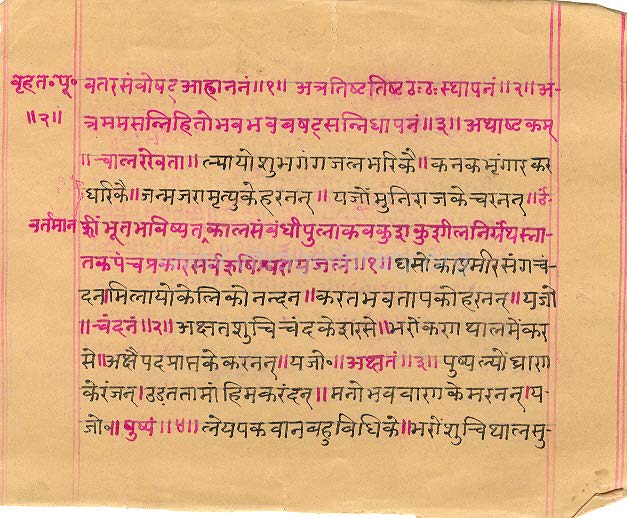 बृहत॰पू॰ वतरसंवोषट् आह्वाननं॥१॥ अत्रतिष्टतिष्ट ठःठः स्थापनं॥२॥ अ-
॥२॥ त्रममसन्निहितोभवभवबषट्सन्निधापनं॥३॥ अथाष्टकम्
॥चालरेवता॥ ल्यायोशुभगंगजलभरिकै॥कनकभृंगारकर
धरिकै॥जन्मजरामृत्युकेहरनन्॥यजोंमुनिराजकेचरनन्॥
वर्तमान भूतभविष्यत्कालसंबंधीपुलाकवकुशकुशीलनिर्ग्रंथस्ना-
तकपंचप्रकारसर्व जलं॥१॥घसोकाश्मीरसंगचं-
दन॥मिलायोकेलिकोनन्दन॥करतभवतापकोहरनन्॥यजो
॥चंदनं॥२॥अक्षतशुचिचंदकेइारसे॥भरोंकरगथालमेंकर
से॥अक्षैपदप्राप्तकेकरनन्॥यजो॰॥अक्षतं॥३॥पुष्पल्योंघ्राण
केरंजन्।उडततामोंहिमकरंदन्॥मनोभववारणकेमरनन्॥य-
जो॰॥पुष्पं॥४॥लेयपकवानबहुविधिके॥भरोंशुचिथालसु-